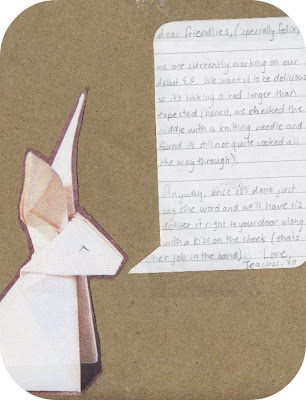 dear friendlies, (specially felicity
we are currently working on our
debut E.P. We want it to be delicious
so it's taking a tad longer than
expected (honest, we checked the
middle with a knitting needle and
found its still not quite cooked all
the way through).
Anyway, once it's done just
say the word and we'll have Liz
deliver it right to your door along
with a kiss on the cheek (thats
her job in the band). Love,
Teacups. xo